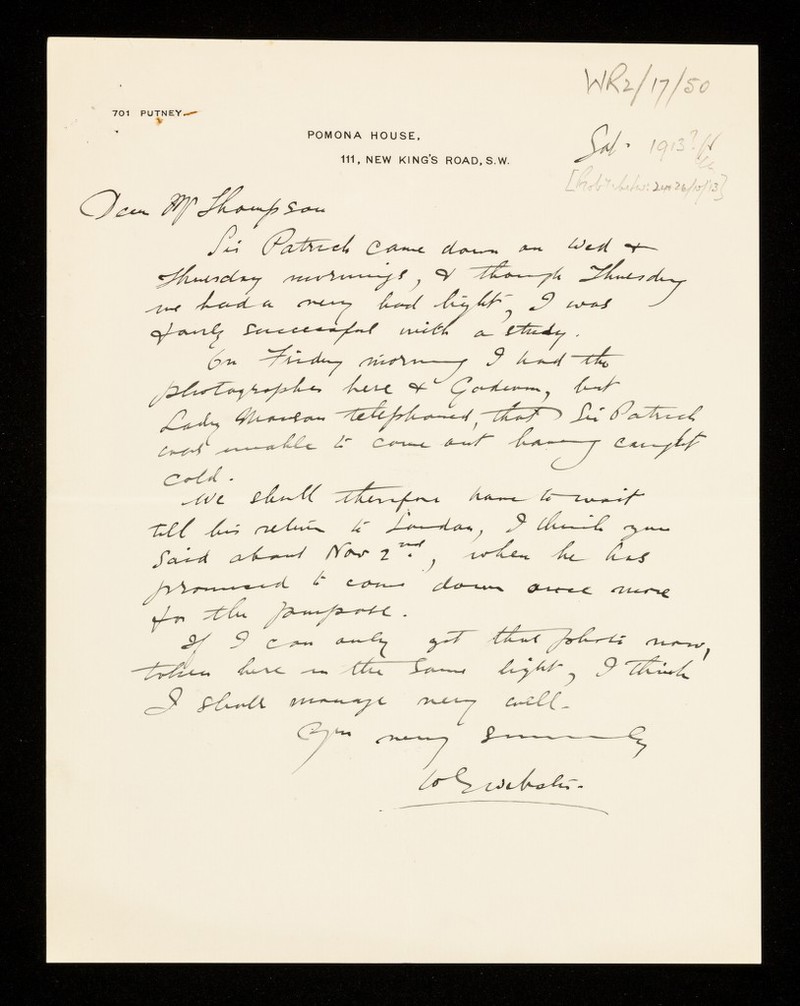 WR2/17/50
701 PUTNEY.
POMONA HOUSE,
111, NEW KING'S ROAD, S.W.
Sat. 1913?
Dear Mr Thompson
Sir Patrick came down on Wed &
Thursday mornings, & though Thursday
we had a very bad light, I was
fairly successful with a study.
On Friday morning I had the
photographer here & Godwin, but
Lady Manson telephoned, that Sir Patrick
was unable to come out having caught
cold.
We shall therefore have to wait
till his return to London, I think you
said about Nov 2nd, when he has
promised to come down once more
for the purpose.
If I can only get that photo now,
taken here in the same light, I think
I shall manage very well.
Yrs very sincerely
W G Webster.